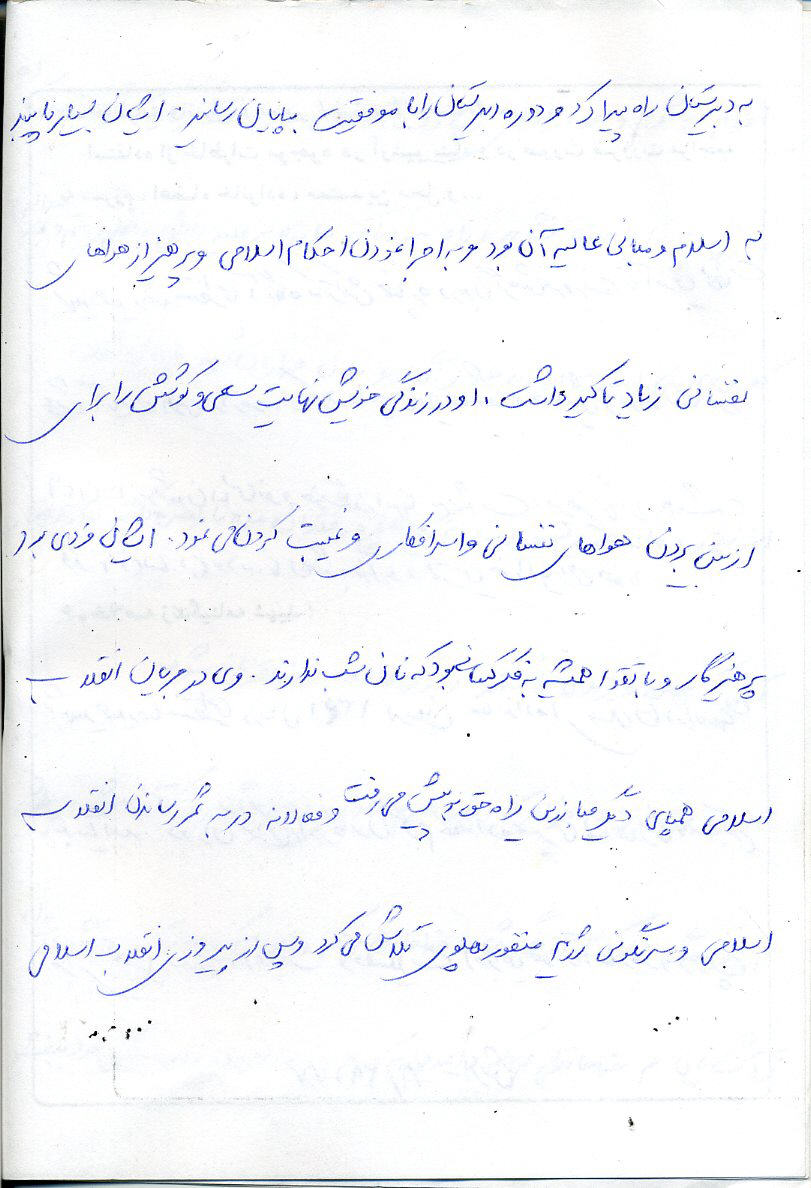 به دبیرستان راه پیدا کرد و دوره دبیرستان را با موفقیت بپایان رسانید. ایشان بسیار پایبند
به اسلام و مبانی عالیه آن بود و به اجرا نمودن احکام اسلامی و پرهیز از هواهای
نفسانی زیاد تاکید داشت. او در زندگی خویش نهایت سعی و کوشش را برای
از بین بردن هواهای نفسانی و اسرافکاری و غیبت کردن می نمود. ایشان فردی بود
پرهیزگار و با تقوا همیشه به فکر کسانی بود که نان شب ندارند. وی در جریان انقلاب
اسلامی همپای دیگر مبارزین راه حق به پیش می رفت و فعالانه در به ثمر رساندن انقلاب
اسلامی و سرنگونی رژیم منفور پهلوی تلاش می کرد و پس از پیروزی انقلاب اسلامی